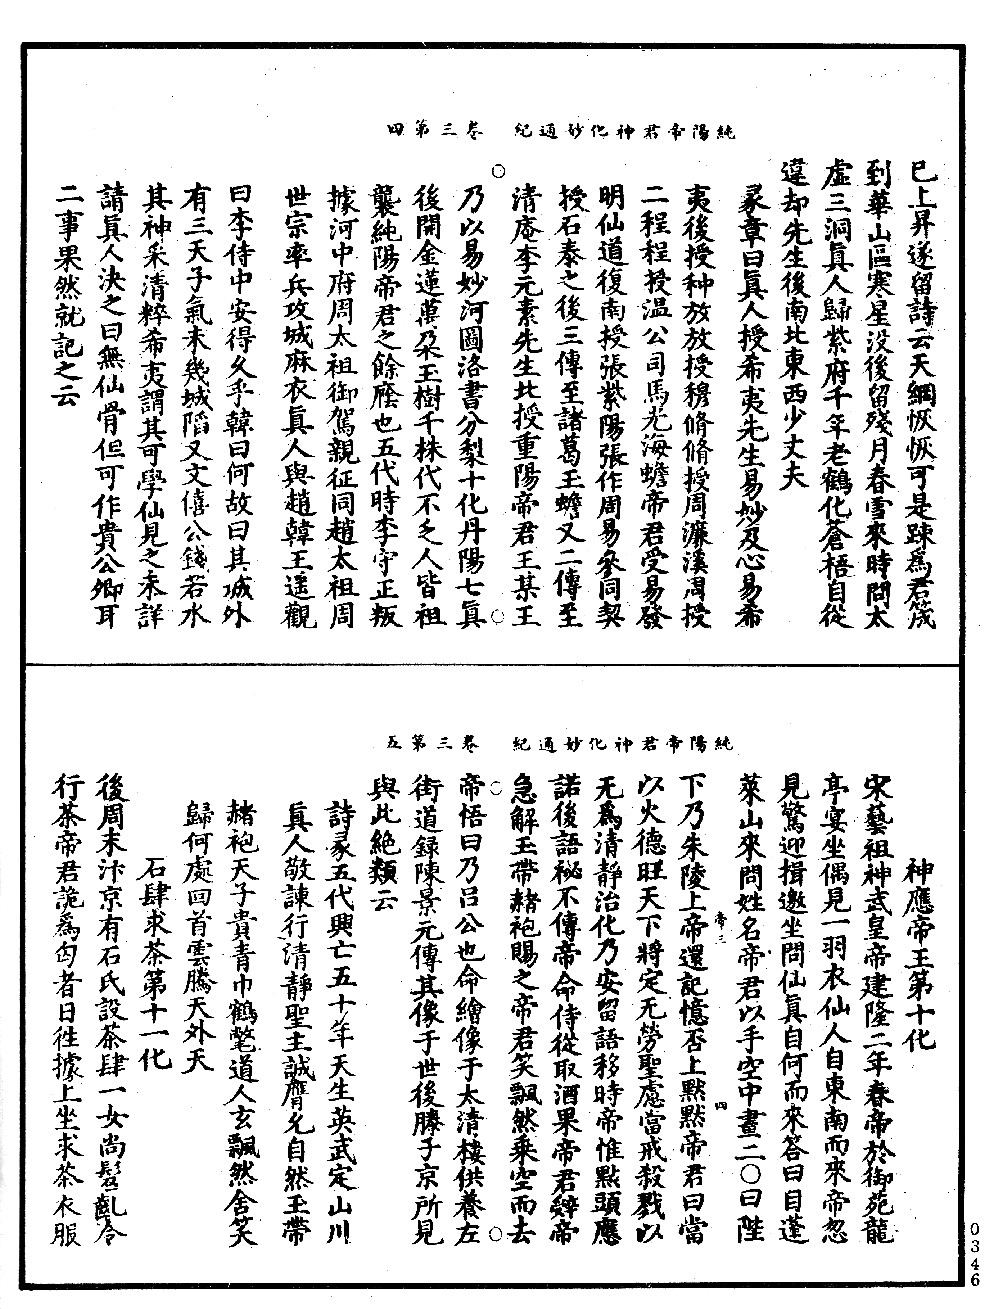 純陽帝君神化妙通紀　卷三第四
巳上昇遂留詩云天綱恢恢可是踈爲君筬
到華山區寒星没後留殘月春雪來時問太
虛三洞眞人歸紫府千年老鶴化蒼梧自從
違却先生後南北東西少丈夫
彖章曰眞人授希夷先生易妙及心易希
夷後授种放放授穆脩脩授周濂溪周授
二程程授溫公司馬光海蟾帝君受易發
明仙道復南授張紫陽張作周易參同契
授石泰之後三傳至諸葛王蟾又二傳至
清庵李元素先生北授重陽帝君王某王
乃以易妙河圖洛書分梨十化丹陽七眞
後開金蓮萬朶玉樹千株代不乏人皆祖
襲純陽帝君之餘廕也五代時李守正叛
據河中府周太祖御駕親征同趙太祖周
世宗率兵攻城麻衣眞人與趙韓王遥觀
曰李侍中安得久乎韓曰何故曰其城外
有三天子氣未幾城䧟又文僖公錢若水
其神采清粹希夷謂其可學仙見之未詳
請眞人決之曰無仙骨但可作貴公卿耳
二事果然就記之云
純陽帝君神化妙通紀　卷三第五
神應帝王第十化
宋藝祖神武皇帝建隆二年春帝於御苑龍
亭宴坐偶見一羽衣仙人自東南而來帝忽
見驚迎揖邀坐問仙眞自何而來答曰自蓬
萊山來問姓名帝君以手空中畫二〇曰陛
下乃朱陵上帝還記憶否上黙黙帝君曰當
以火德旺天下將定无勞聖慮當戒殺戮以
无爲清靜治化乃安留語移時帝惟點頭應
諾後語祕不傳帝命侍從取酒果帝君辭帝
急解玉帶赭袍賜之帝君笑飄然乘空而去
帝悟曰乃吕公也命繪像于太清樓供養左
街道録陳景元傳其像于世後滕子京所見
與此絶類云
詩彖五代興亡五十年天生英武定山川
眞人敬諫行清靜聖主誠膺允自然玉帶
赭袍天子貴青巾鶴氅道人玄飄然舍笑
歸何處回首雲騰天外天
石肆求茶第十一化
後周末汴京有石氏設茶肆一女尚髫齓令
行茶帝君詭爲丐者日徃據上坐求茶衣服
帝三
四
0346